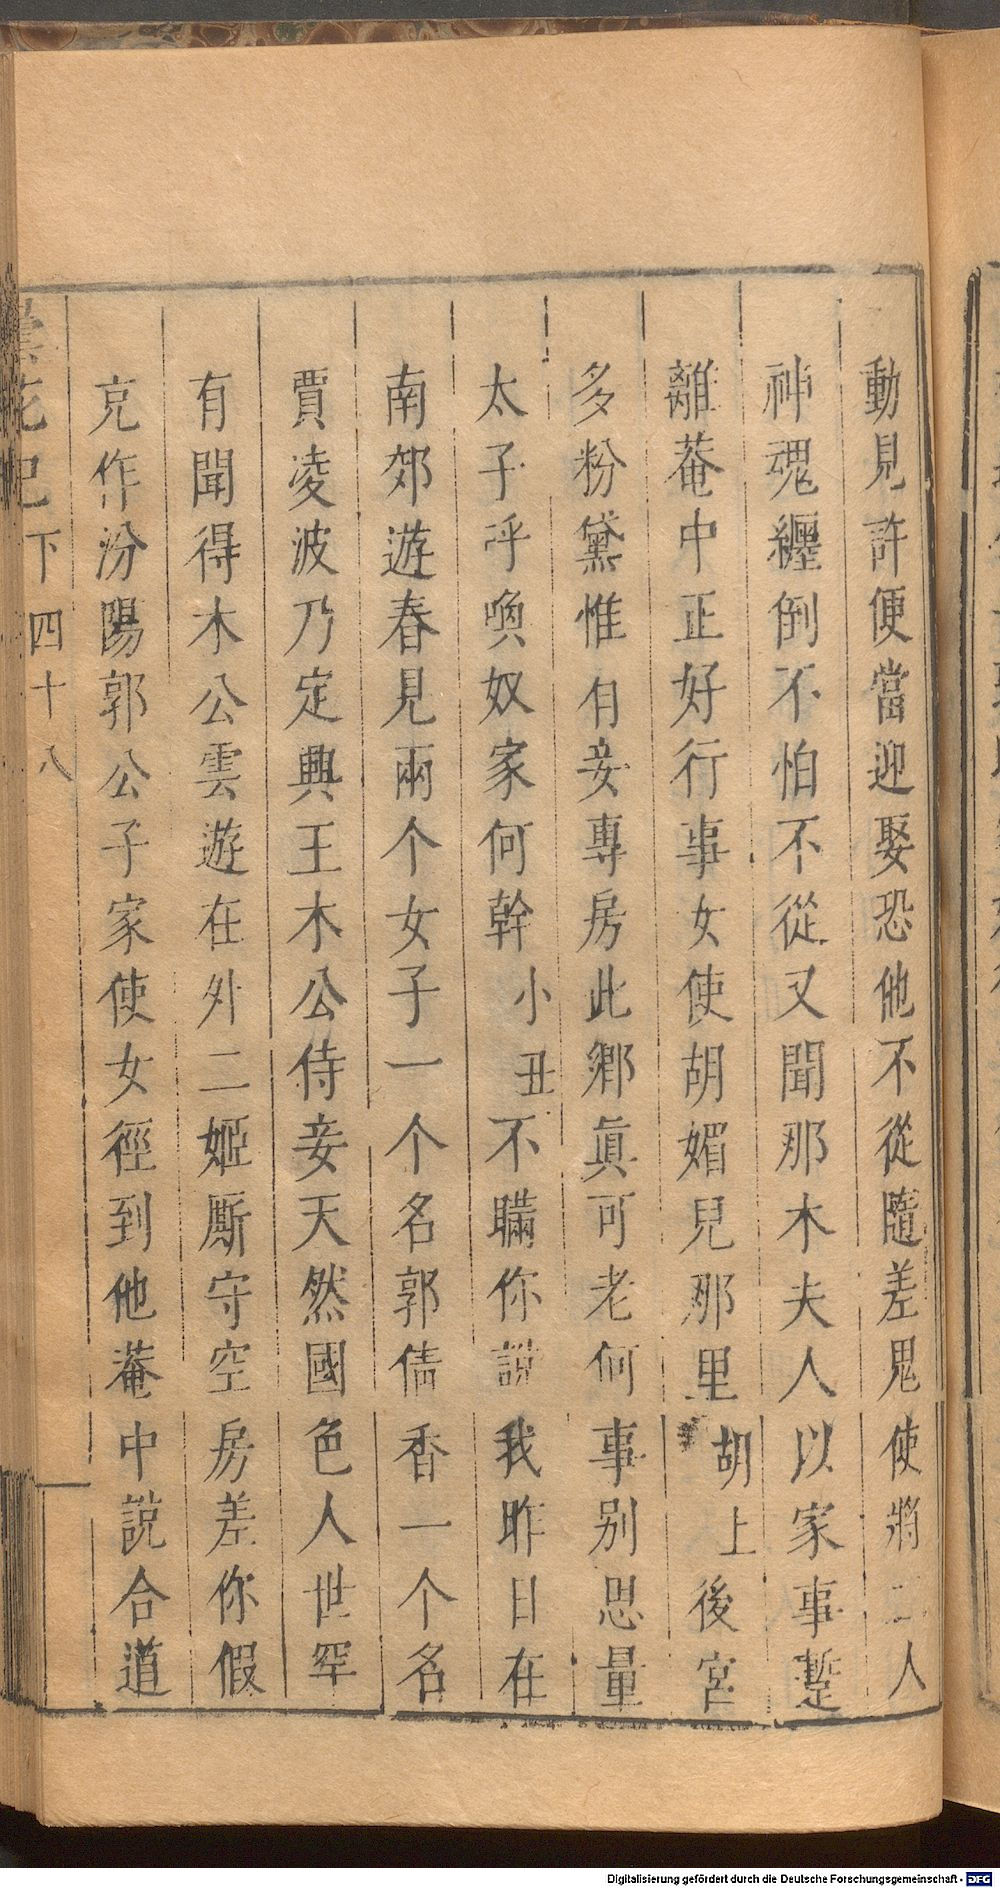 動見許便當迎娶恐他不從隨差鬼使將二人
神魂纏倒不怕不從又聞那木夫人以家事蹔
離菴中正好行事女使胡媚兒那里胡上後宮
多粉黛惟有妾專房此鄉眞可老何事別思量
太子呼喚奴家何幹小丑不瞞你說我昨日在
南郊遊春見兩个女子一个名郭倩香一个名
賈凌波乃定興王木公侍妾天然國色人世罕
有聞得木公雲遊在外二姬厮守空房差你假
克作汾陽郭公子家使女徑到他菴中說合道
曇花記 下 四十八
Digitalisierung gefördert durch die Deutsche Forschungsgemeinschaft - DFG